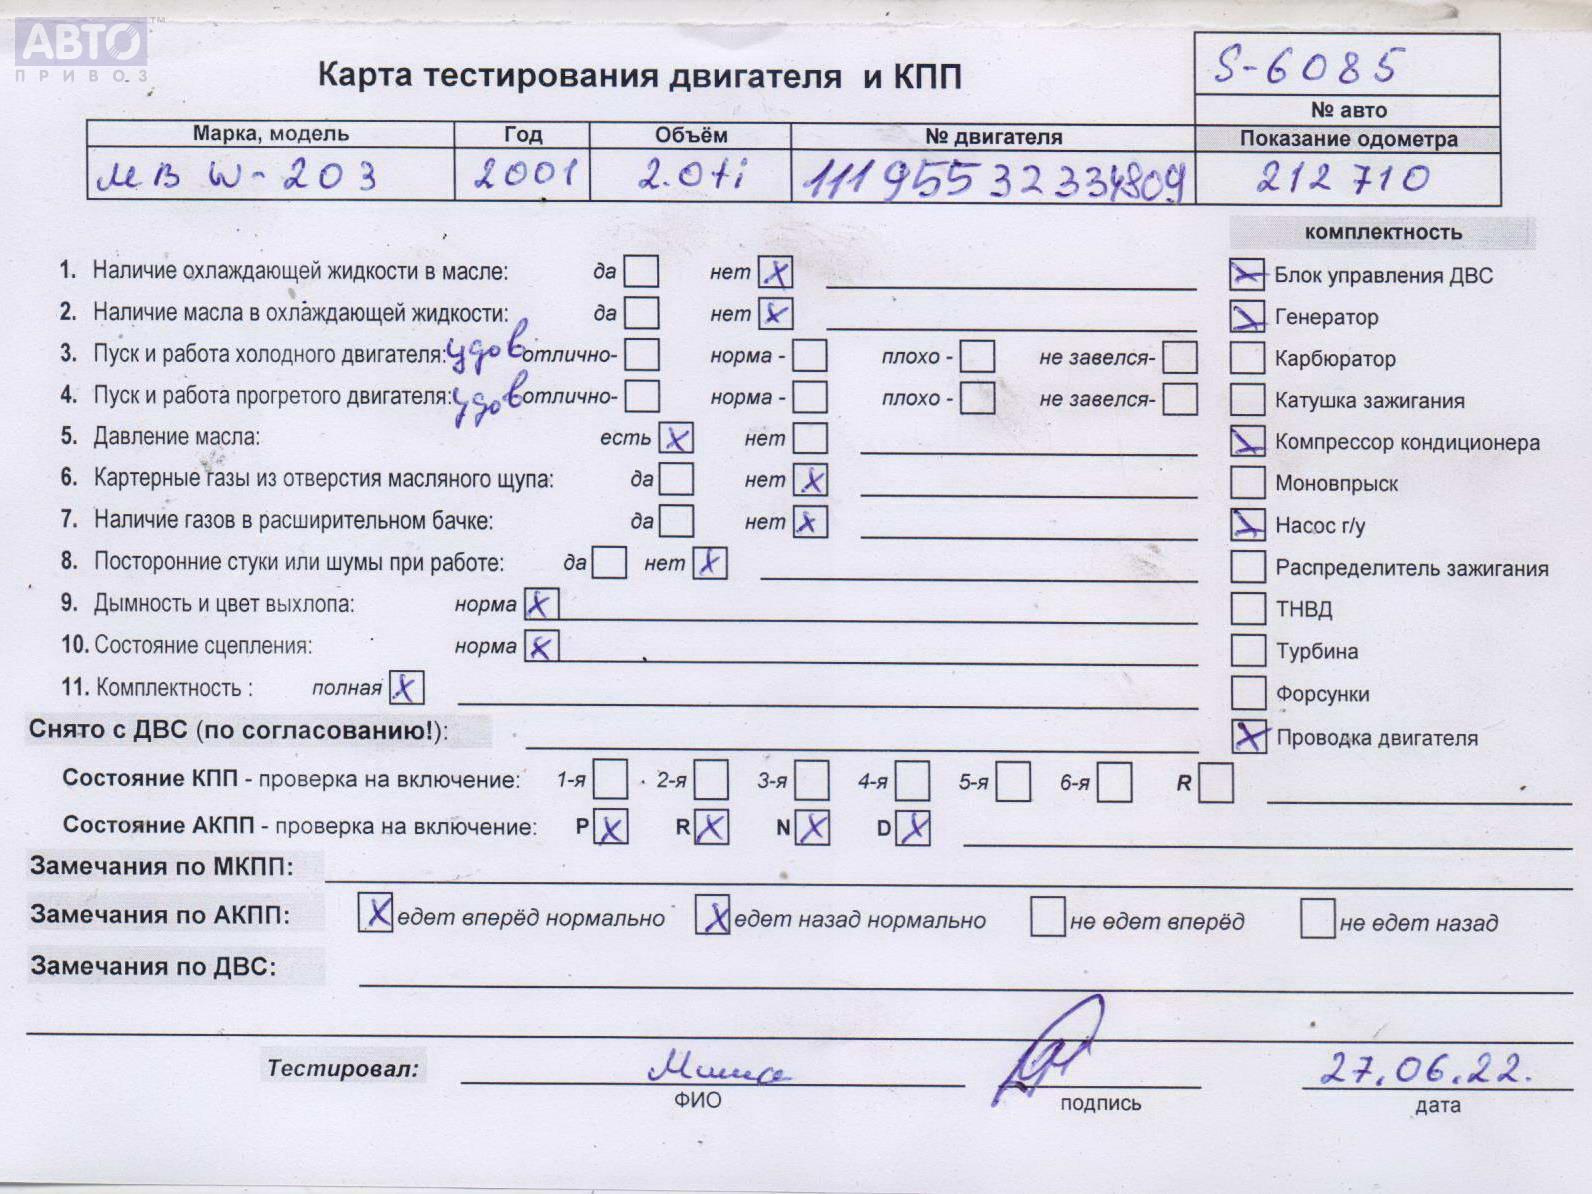 АВТО™
ПРИВОЗ
Карта тестирования двигателя и КПП
S-6085
№ авто
Марка, модель Год Объём № двигателя Показание одометра
МВ W-203 2001 2.0ti 111955 32 334809 212 710
комплектность
1. Наличие охлаждающей жидкости в масле: да нет X
Блок управления ДВС
2. Наличие масла в охлаждающей жидкости: да нет X
Генератор
3. Пуск и работа холодного двигателя: удов отлично- норма - плохо - не завелся-
Карбюратор
4. Пуск и работа прогретого двигателя: удов отлично- норма - плохо - не завелся-
Катушка зажигания
5. Давление масла: есть X нет
Компрессор кондиционера
6. Картерные газы из отверстия масляного щупа: да нет X
Моновпрыск
7. Наличие газов в расширительном бачке: да нет X
Насос г/у
8. Посторонние стуки или шумы при работе: да нет X
Распределитель зажигания
9. Дымность и цвет выхлопа: норма X
ТНВД
10. Состояние сцепления: норма X
Турбина
11. Комплектность : полная X
Форсунки
Снято с ДВС (по согласованию!):
Проводка двигателя
Состояние КПП - проверка на включение: 1-я 2-я 3-я 4-я 5-я 6-я R
Состояние АКПП - проверка на включение: P X R X N X D X
Замечания по МКПП:
Замечания по АКПП: X едет вперёд нормально X едет назад нормально не едет вперёд не едет назад
Замечания по ДВС:
Тестировал: Миша 27.06.22.
ФИО подпись дата